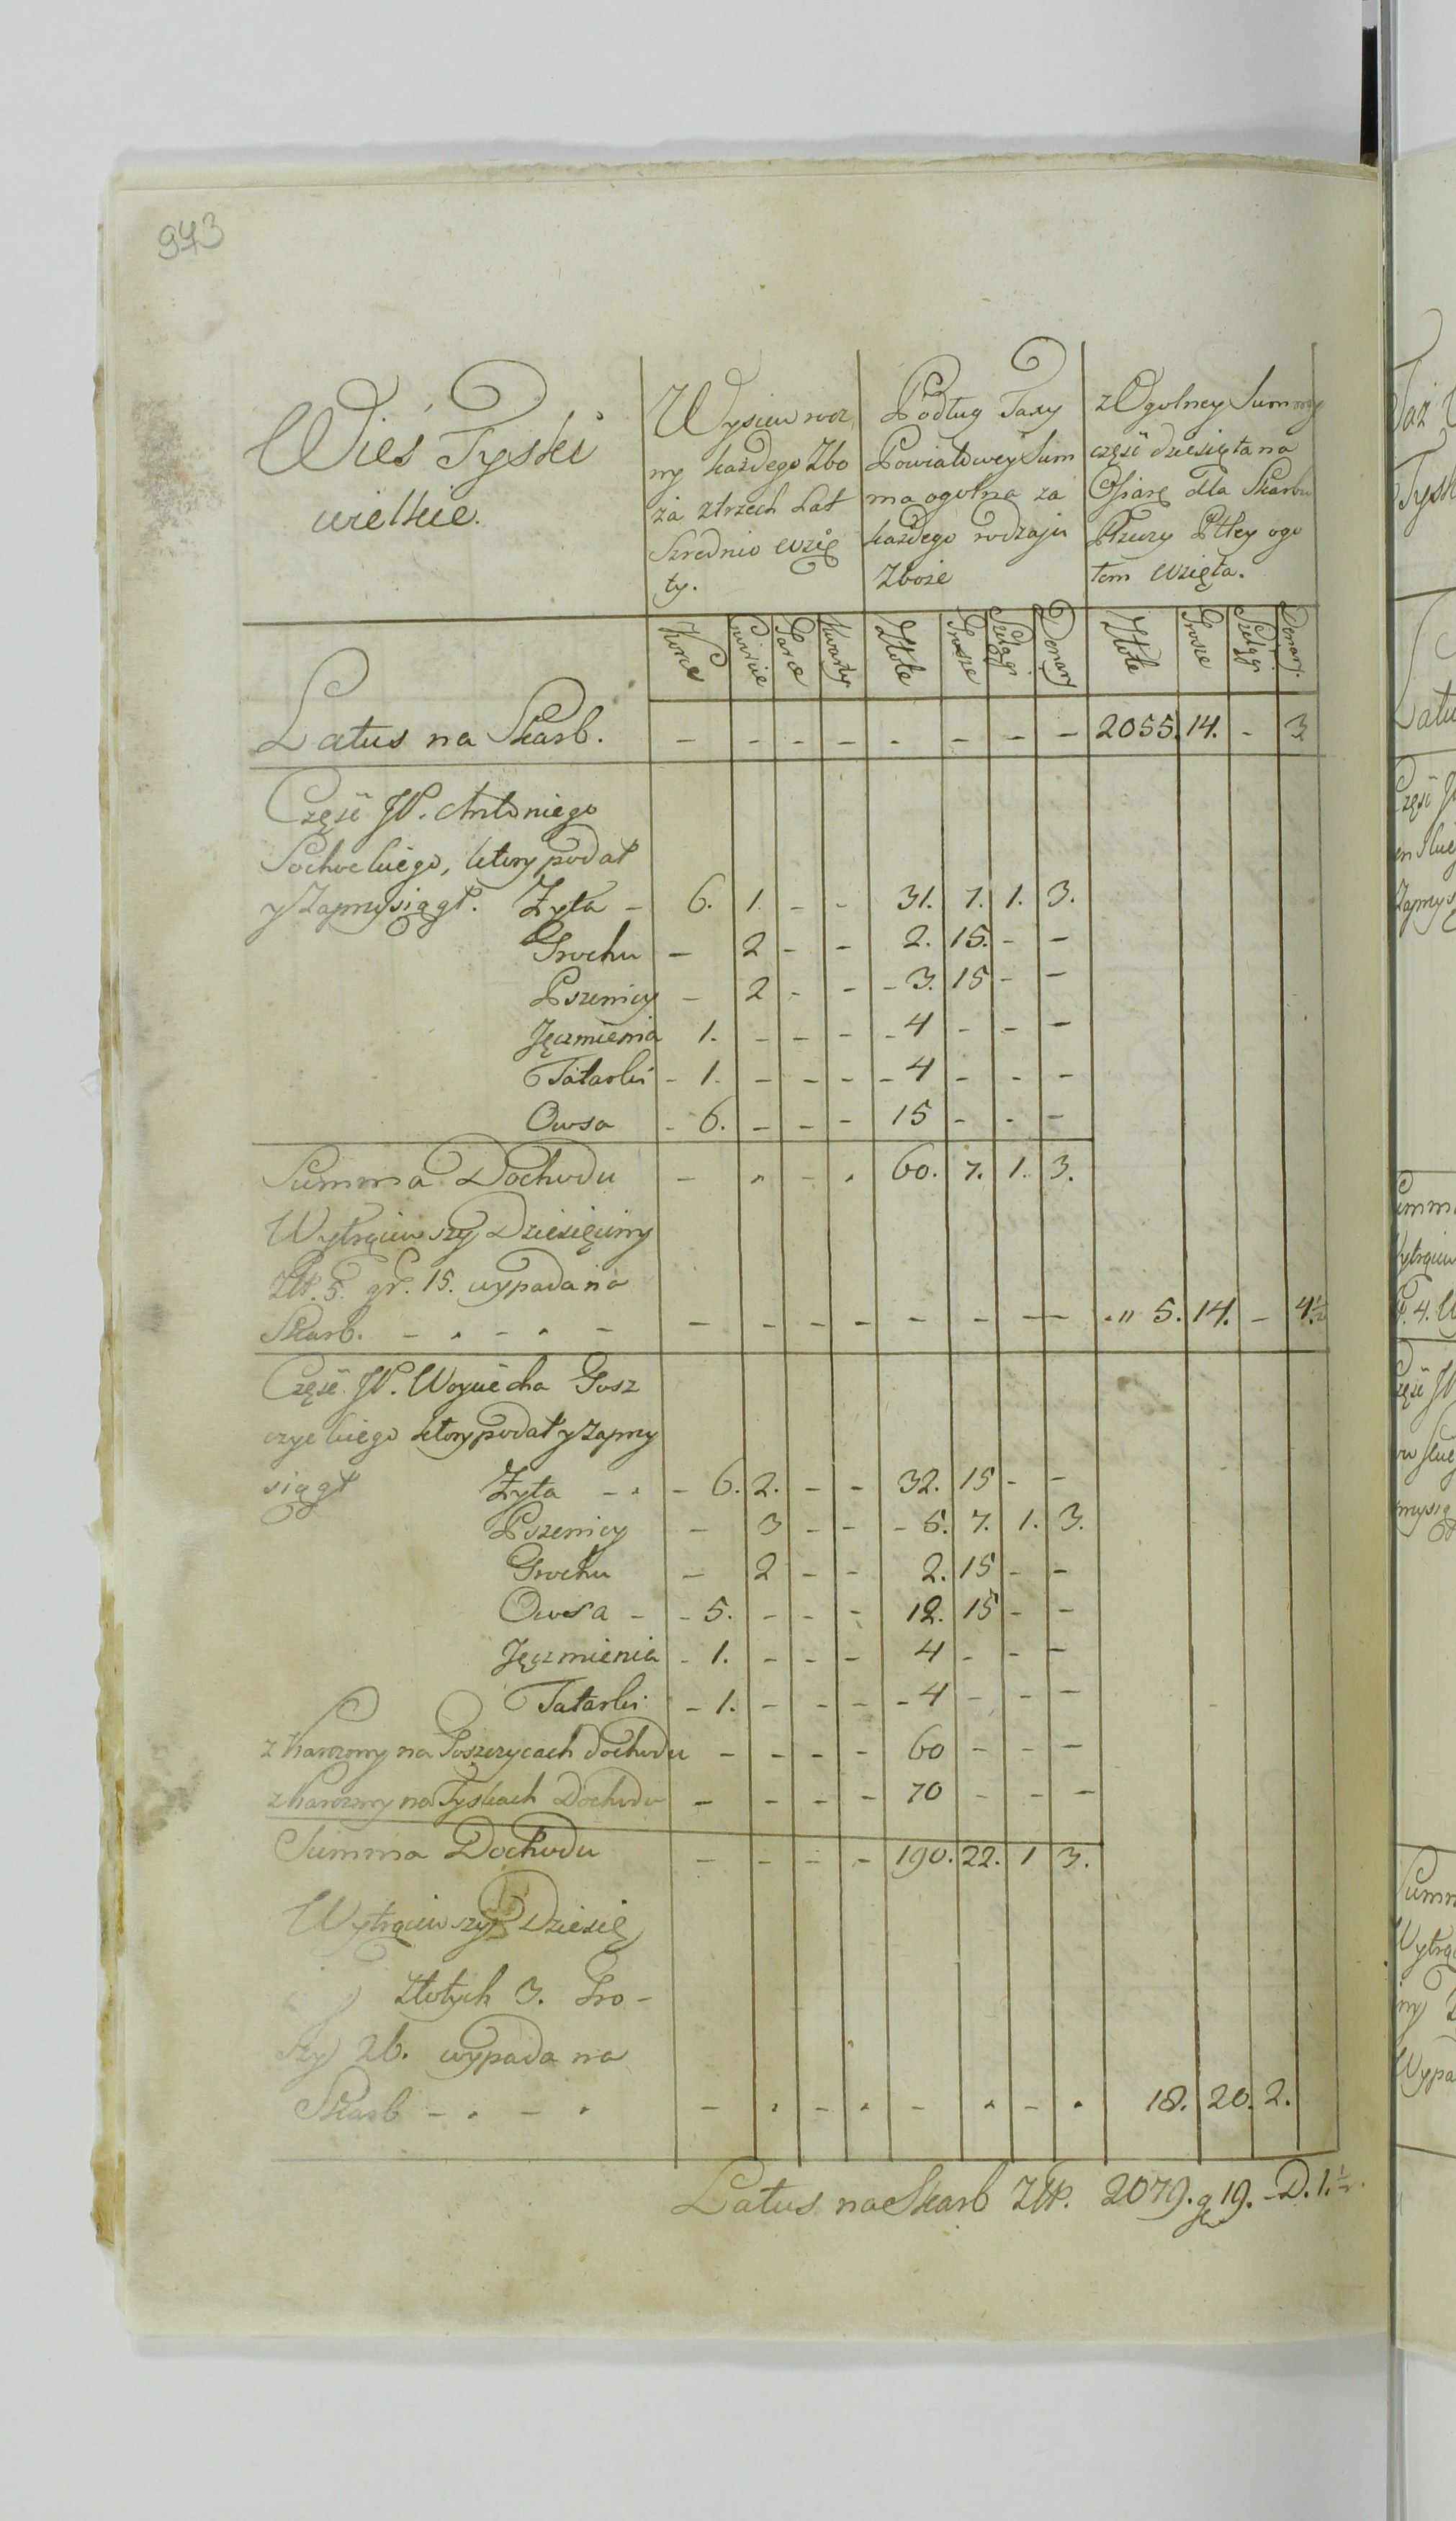 943
Wieś Tyski wielkie.
Wysiew rocz ny każdego Zbo ża z trzech Lat Szrednio wzię ty.
Podług Taxy Powiatowey Sum ma ogolna za każdego rodzaju Zboże
z Ogolney Summy część dziesięta na Ofiarę dla Skarbu Rzeczy Pltey ogo łem wzięta.
Korce Cwierce Garce Kwarty Złote Grosze Szelągi Denary Złote Grosze Szelągi Denary
Latus na Skarb. - - - - - - - - 2055. 14. - 3
Część JP. Antoniego
Sochockiego, ktory podał
y zaprzysiągł. Żyta - 6. 1. - - 31. 7. 1. 3.
Grochu - 2 - - 2. 15. - -
Pszenicy - 2 - - - 3. 15 - -
Jęczmienia 1. - - - - 4 - - -
Tatarki - 1. - - - - 4 - - -
Owsa - 6. - - - 15 - - -
Summa Dochodu - - - - 60. 7. 1. 3.
Wytrąciwszy Dziesięciny
Złt. 5. gr. 15. wypada na
Skarb. - - - - - - - - - - - - - 5. 14. - 4½
Część JP. Woyciecha Gosz
czyckiego ktory podał y zaprzy
siągł Żyta - - - 6. 2. - - 32. 15 - -
Pszenicy - 3 - - - 5. 7. 1. 3.
Grochu - 2 - - 2. 15 - -
Owsa - - 5. - - - 12. 15 - -
Jęczmienia - 1. - - - 4 - - -
Tatarki - 1. - - - - 4 - - -
z Karczmy na Goszczycach dochodu - - - - 60 - - -
z Karczmy na Tyskach Dochodu - - - - 70 - - -
Summa Dochodu - - - - 190. 22. 1 3.
Wytrąciwszy Dziesię
Złotych 3. Gro-
szy 26. wypada na
Skarb - - - - - - - - - - - - 18. 20. 2.
Latus na Skarb Złt. 2079. gr 19. - D. 1.½.